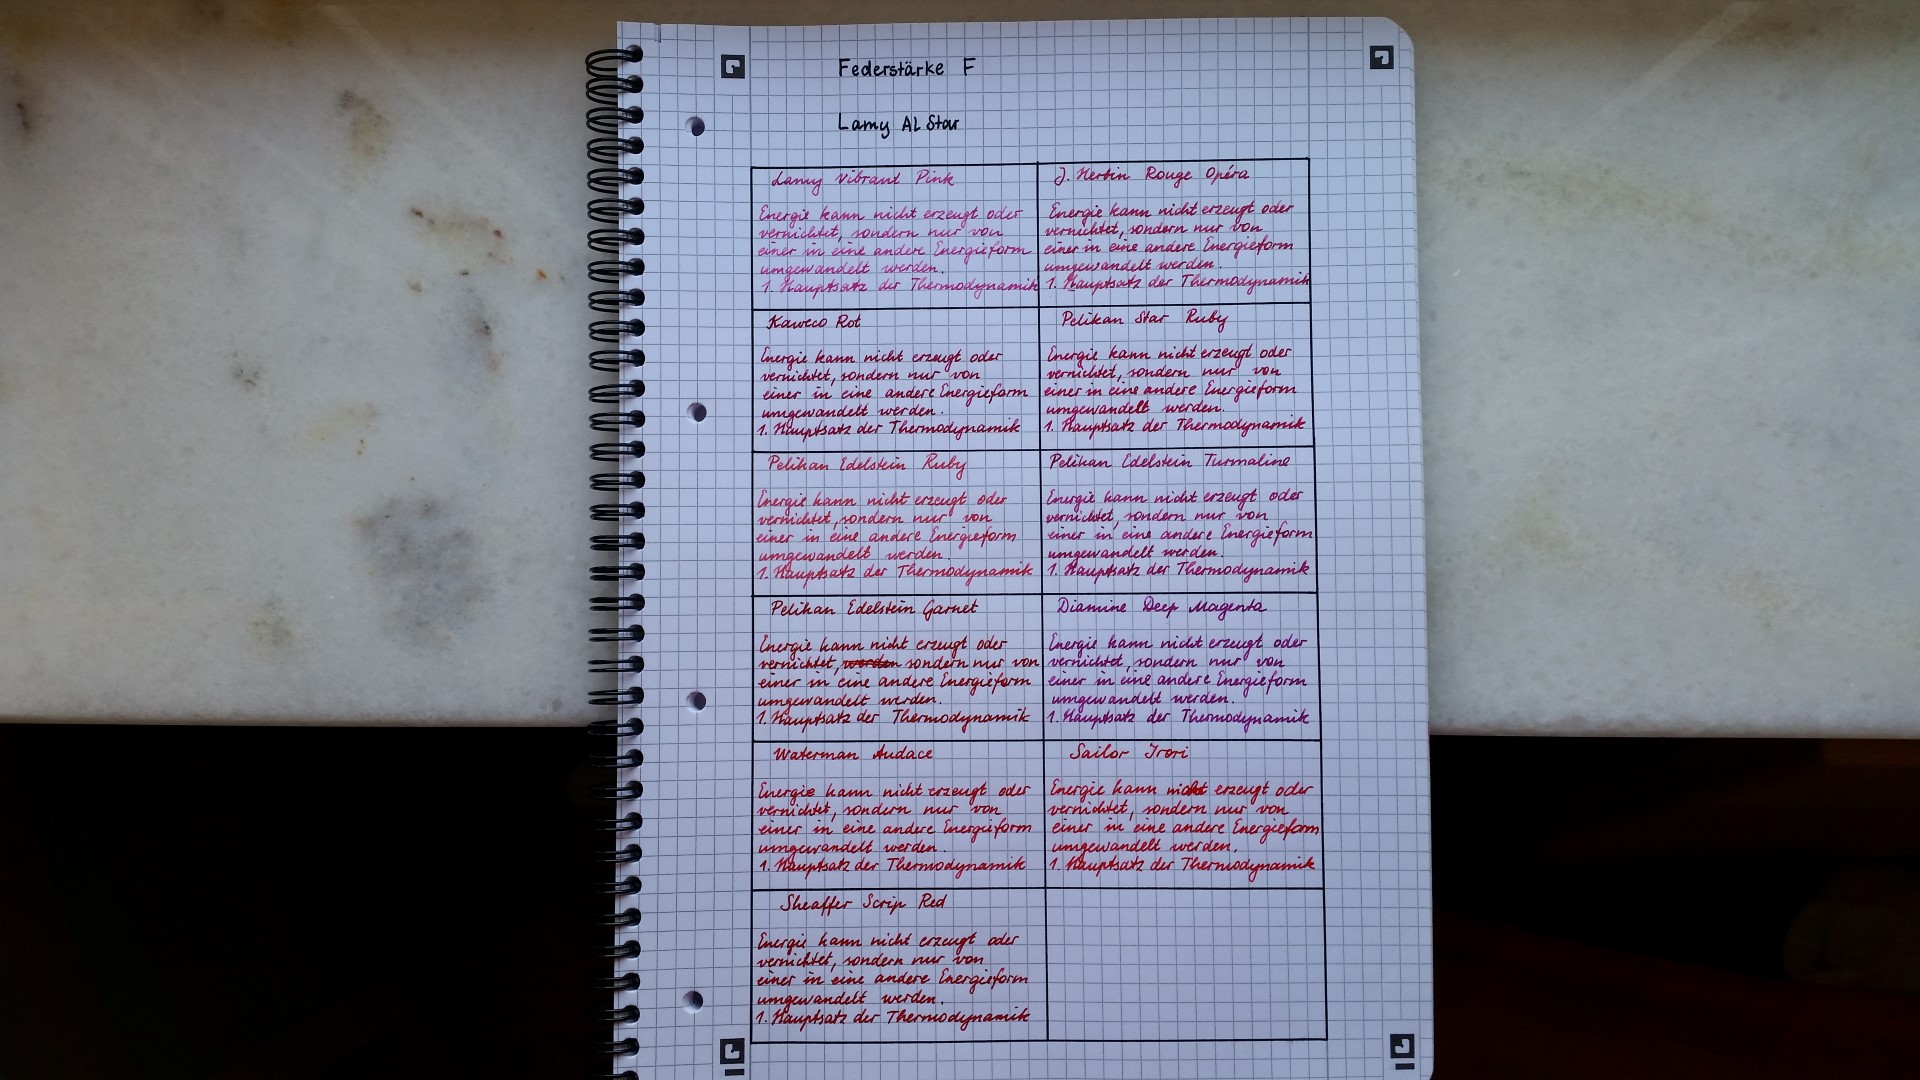 Federstärke F
Lamy AL Star
Lamy Vibrant Pink
Energie kann nicht erzeugt oder
vernichtet, sondern nur von
einer in eine andere Energieform
umgewandelt werden.
1. Hauptsatz der Thermodynamik
J. Herbin Rouge Opéra
Energie kann nicht erzeugt oder
vernichtet, sondern nur von
einer in eine andere Energieform
umgewandelt werden.
1. Hauptsatz der Thermodynamik
Kaweco Rot
Energie kann nicht erzeugt oder
vernichtet, sondern nur von
einer in eine andere Energieform
umgewandelt werden.
1. Hauptsatz der Thermodynamik
Pelikan Star Ruby
Energie kann nicht erzeugt oder
vernichtet, sondern nur von
einer in eine andere Energieform
umgewandelt werden.
1. Hauptsatz der Thermodynamik
Pelikan Edelstein Ruby
Energie kann nicht erzeugt oder
vernichtet, sondern nur von
einer in eine andere Energieform
umgewandelt werden.
1. Hauptsatz der Thermodynamik
Pelikan Edelstein Turmaline
Energie kann nicht erzeugt oder
vernichtet, sondern nur von
einer in eine andere Energieform
umgewandelt werden.
1. Hauptsatz der Thermodynamik
Pelikan Edelstein Garnet
Energie kann nicht erzeugt oder
vernichtet, werden sondern nur von
einer in eine andere Energieform
umgewandelt werden.
1. Hauptsatz der Thermodynamik
Diamine Deep Magenta
Energie kann nicht erzeugt oder
vernichtet, sondern nur von
einer in eine andere Energieform
umgewandelt werden.
1. Hauptsatz der Thermodynamik
Waterman Audace
Energie kann nicht erzeugt oder
vernichtet, sondern nur von
einer in eine andere Energieform
umgewandelt werden.
1. Hauptsatz der Thermodynamik
Sailor Irori
Energie kann nicht erzeugt oder
vernichtet, sondern nur von
einer in eine andere Energieform
umgewandelt werden.
1. Hauptsatz der Thermodynamik
Sheaffer Scrip Red
Energie kann nicht erzeugt oder
vernichtet, sondern nur von
einer in eine andere Energieform
umgewandelt werden.
1. Hauptsatz der Thermodynamik